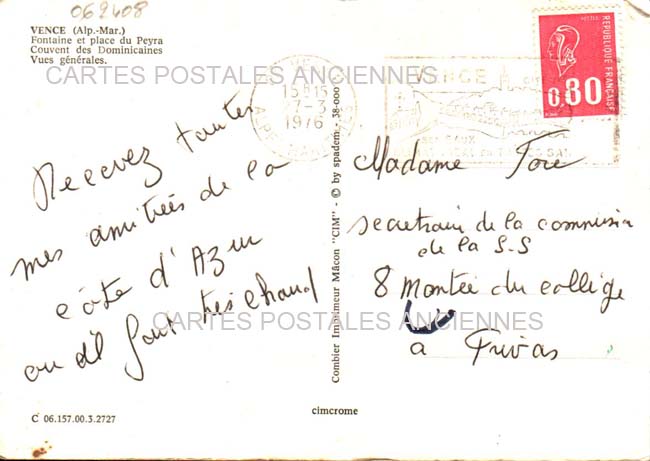 062408
VENCE (Alp.-Mar.)
Fontaine et place du Peyra
Couvent des Dominicaines
Vues générales.
CARTES POSTALES ANCIENNES
15H15
27-3
1976
VENCE
REPUBLIQUE FRANÇAISE
0,80
Recevez toutes
mes amitiées de la
côte d'Azur
où il fait très chaud
Combier Imprimeur Mâcon "CIM" - © by spadem - 38-000
Madame Fore
secretrair de la commission
de la S-S
8 Montée du collège
à Privas
CARTES POSTALES ANCIENNES
C 06.157.00.3.2727
cimcrome